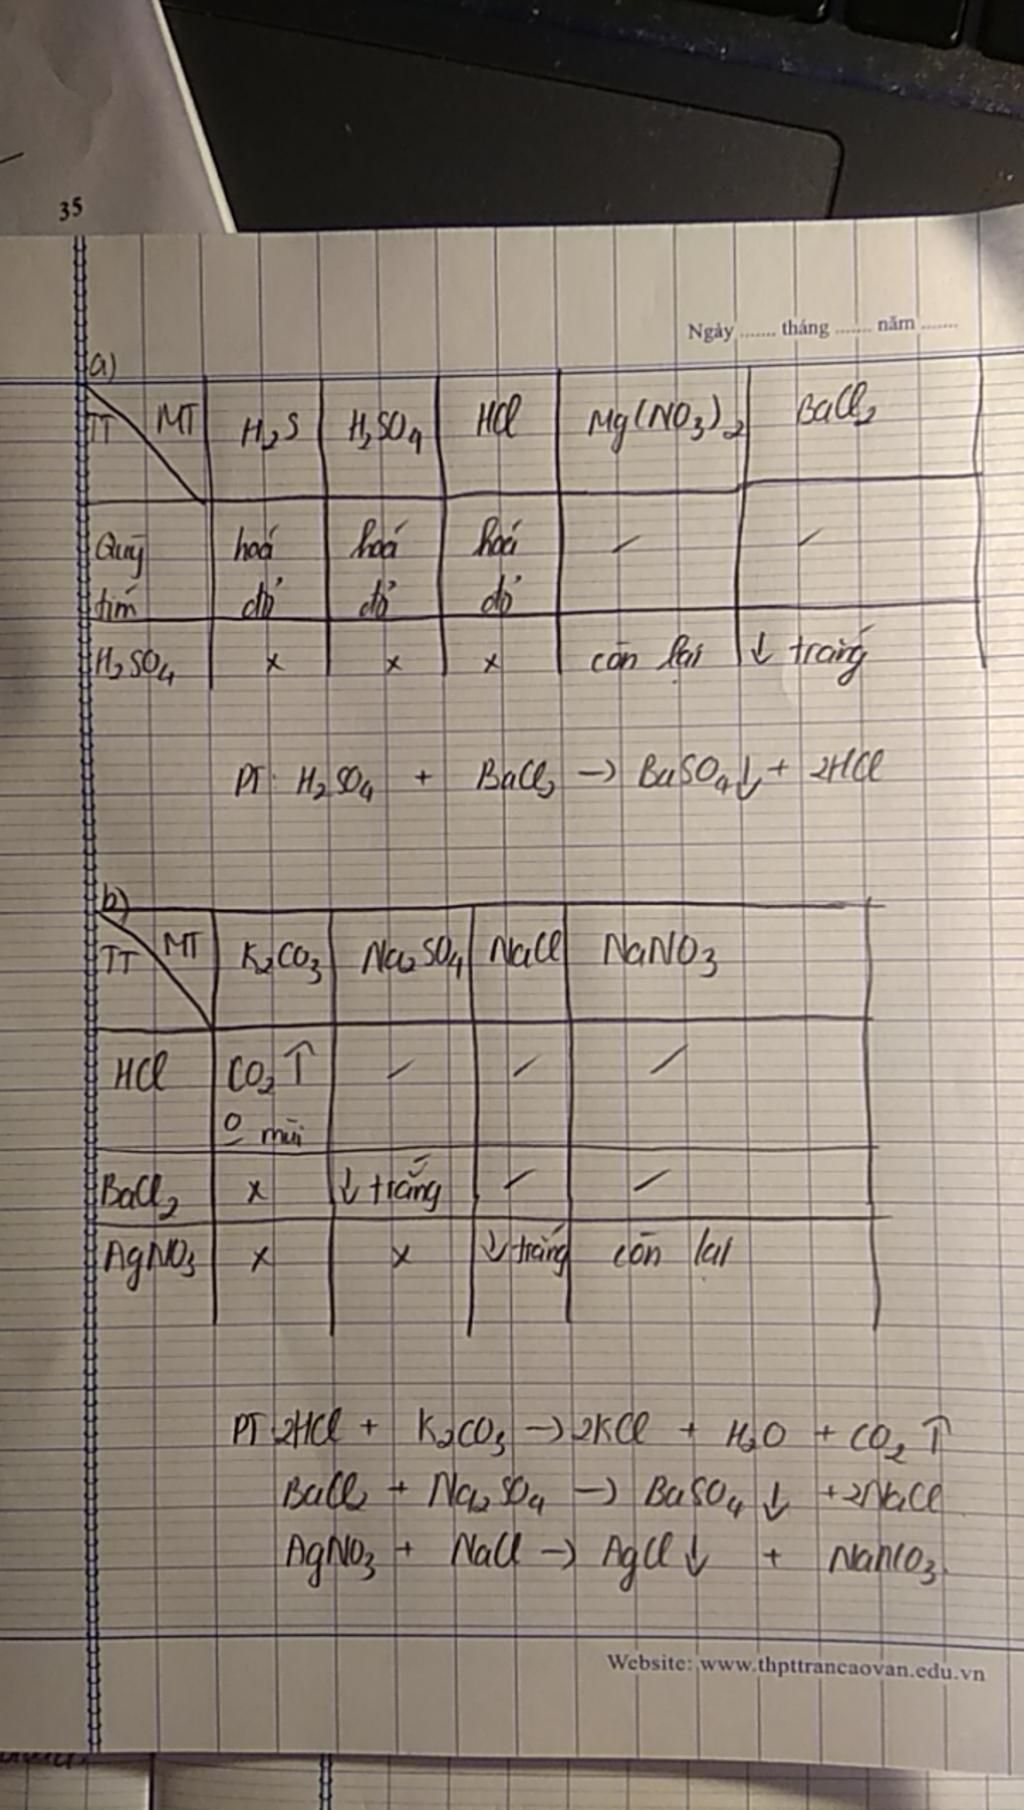 35
Ngày ....... tháng ...... năm .......
a)
TT MT H₂S H₂SO₄ HCl Mg(NO₃)₂ BaCl₂
Quỳ hoá hoá hoá - -
tím đỏ đỏ đỏ
H₂SO₄ x x x còn lại ↓ trắng
PT: H₂SO₄ + BaCl₂ → BaSO₄↓ + 2HCl
b)
TT MT K₂CO₃ Na₂SO₄ NaCl NaNO₃
HCl CO₂↑ - - -
O mùi
BaCl₂ x ↓ trắng - -
AgNO₃ x x ↓ trắng còn lại
PT 2HCl + K₂CO₃ → 2KCl + H₂O + CO₂↑
BaCl₂ + Na₂SO₄ → BaSO₄↓ + 2NaCl
AgNO₃ + NaCl → AgCl↓ + NaNO₃
Website: www.thpttrancaovan.edu.vn